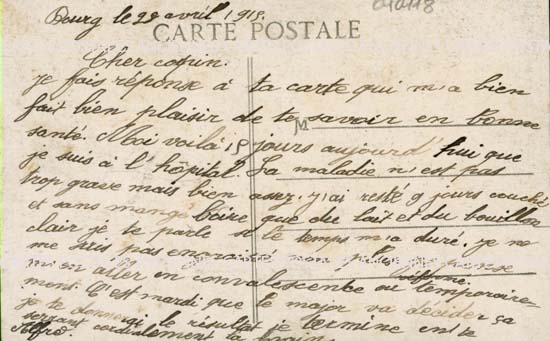 Bourg le 28 avril 1915.
040118
CARTE POSTALE
Cher copin.
je fais réponse à ta carte qui m'a bien
fait bien plaisir de te savoir en bonne
M
santé. Moi voilà 18 jours aujourd'hui que
je suis à l'hôpital. La maladie n'est pas
trop grave mais bien assez. j'ai resté 9 jours couché
et sans mangé boire que du lait et du bouillon
clair je te parle si le temps m'a duré. je ne
me suis pas encore non plus je pense
m'en aller en convalescence ou temporaire
ment. C'est mardi que le major va décider ça
je te donnerai le résultat je termine en te
serrant cordialement la main.
Alfred.